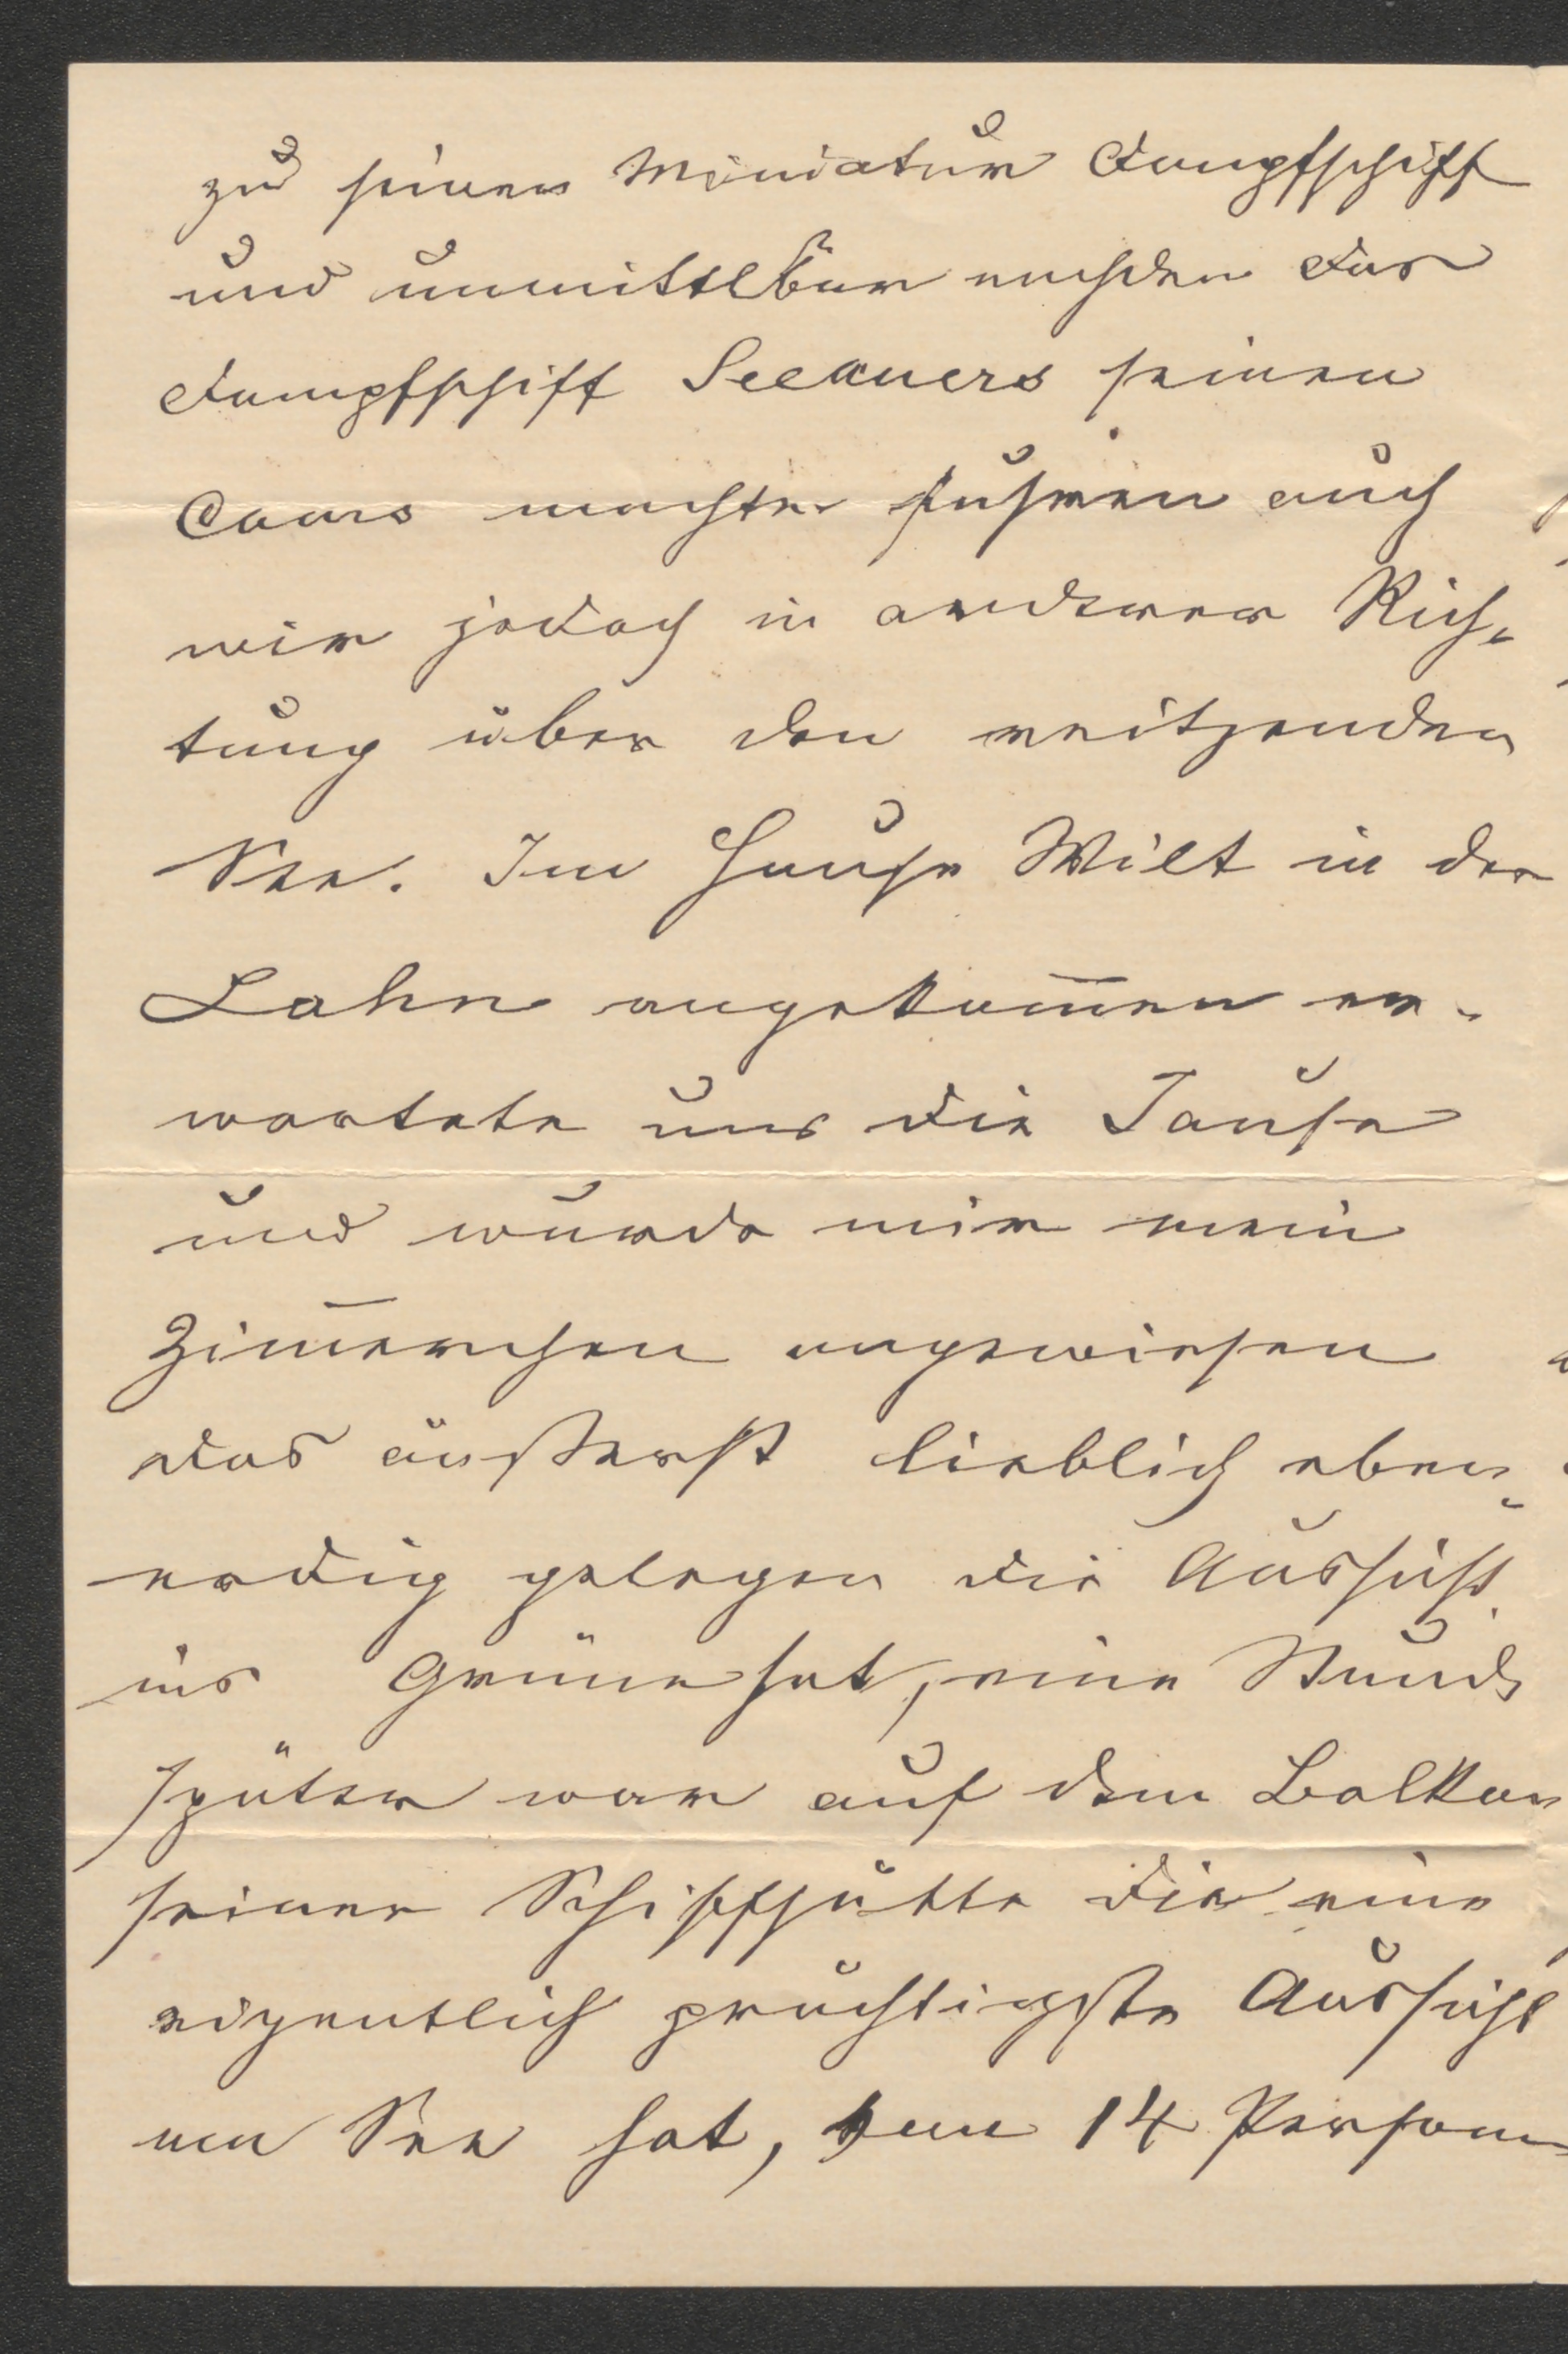 zu seinem Miniatur Dampfschiff
und unmittelbar nachdem das
Dampfschiff Seeauers seinen
Cours machte fuhren auch
wir jedoch in anderer Rich-
tung über den reitzenden
See. Im Hause Wilt in der
Lahn angekom̄en er-
wartete uns die Jause
und wurde mir mein
Zim̄erchen angewiesen
das äusserst lieblich eben-
erdig gelegen die Aussicht
ins Grüne hat, eine Stunde
später war auf dem Balkon
seiner Schiffhütte die eine
eigentlich prächtigste Aussicht
am See hat, 14 Personen